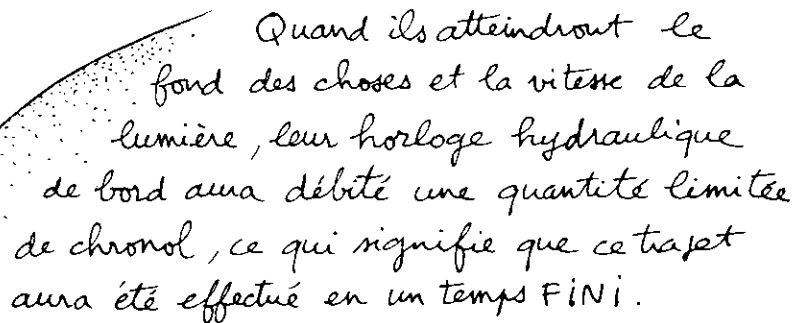 Quand ils atteindront le
fond des choses et la vitesse de la
lumière, leur horloge hydraulique
de bord aura débité une quantité limitée
de chronol, ce qui signifie que ce trajet
aura été effectué en un temps FiNi.